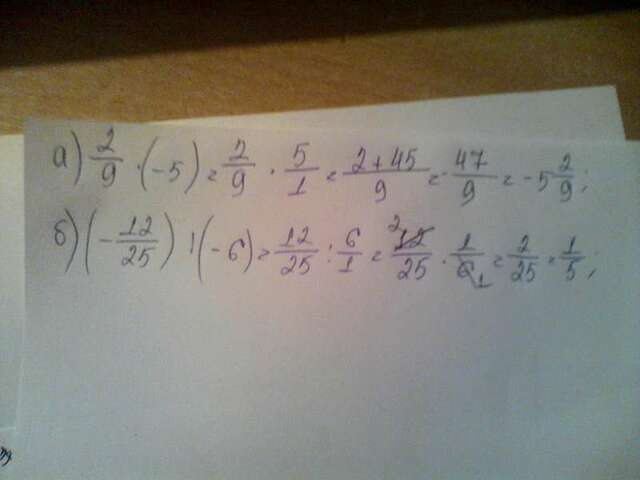 а) 2/9 · (-5) = 2/9 · 5/1 = 2+45/9 = -47/9 = -5 2/9;
б) (-12/25) : (-6) = 12/25 : 6/1 = 2 12/25 · 1/6 1 = 2/25 = 1/5;